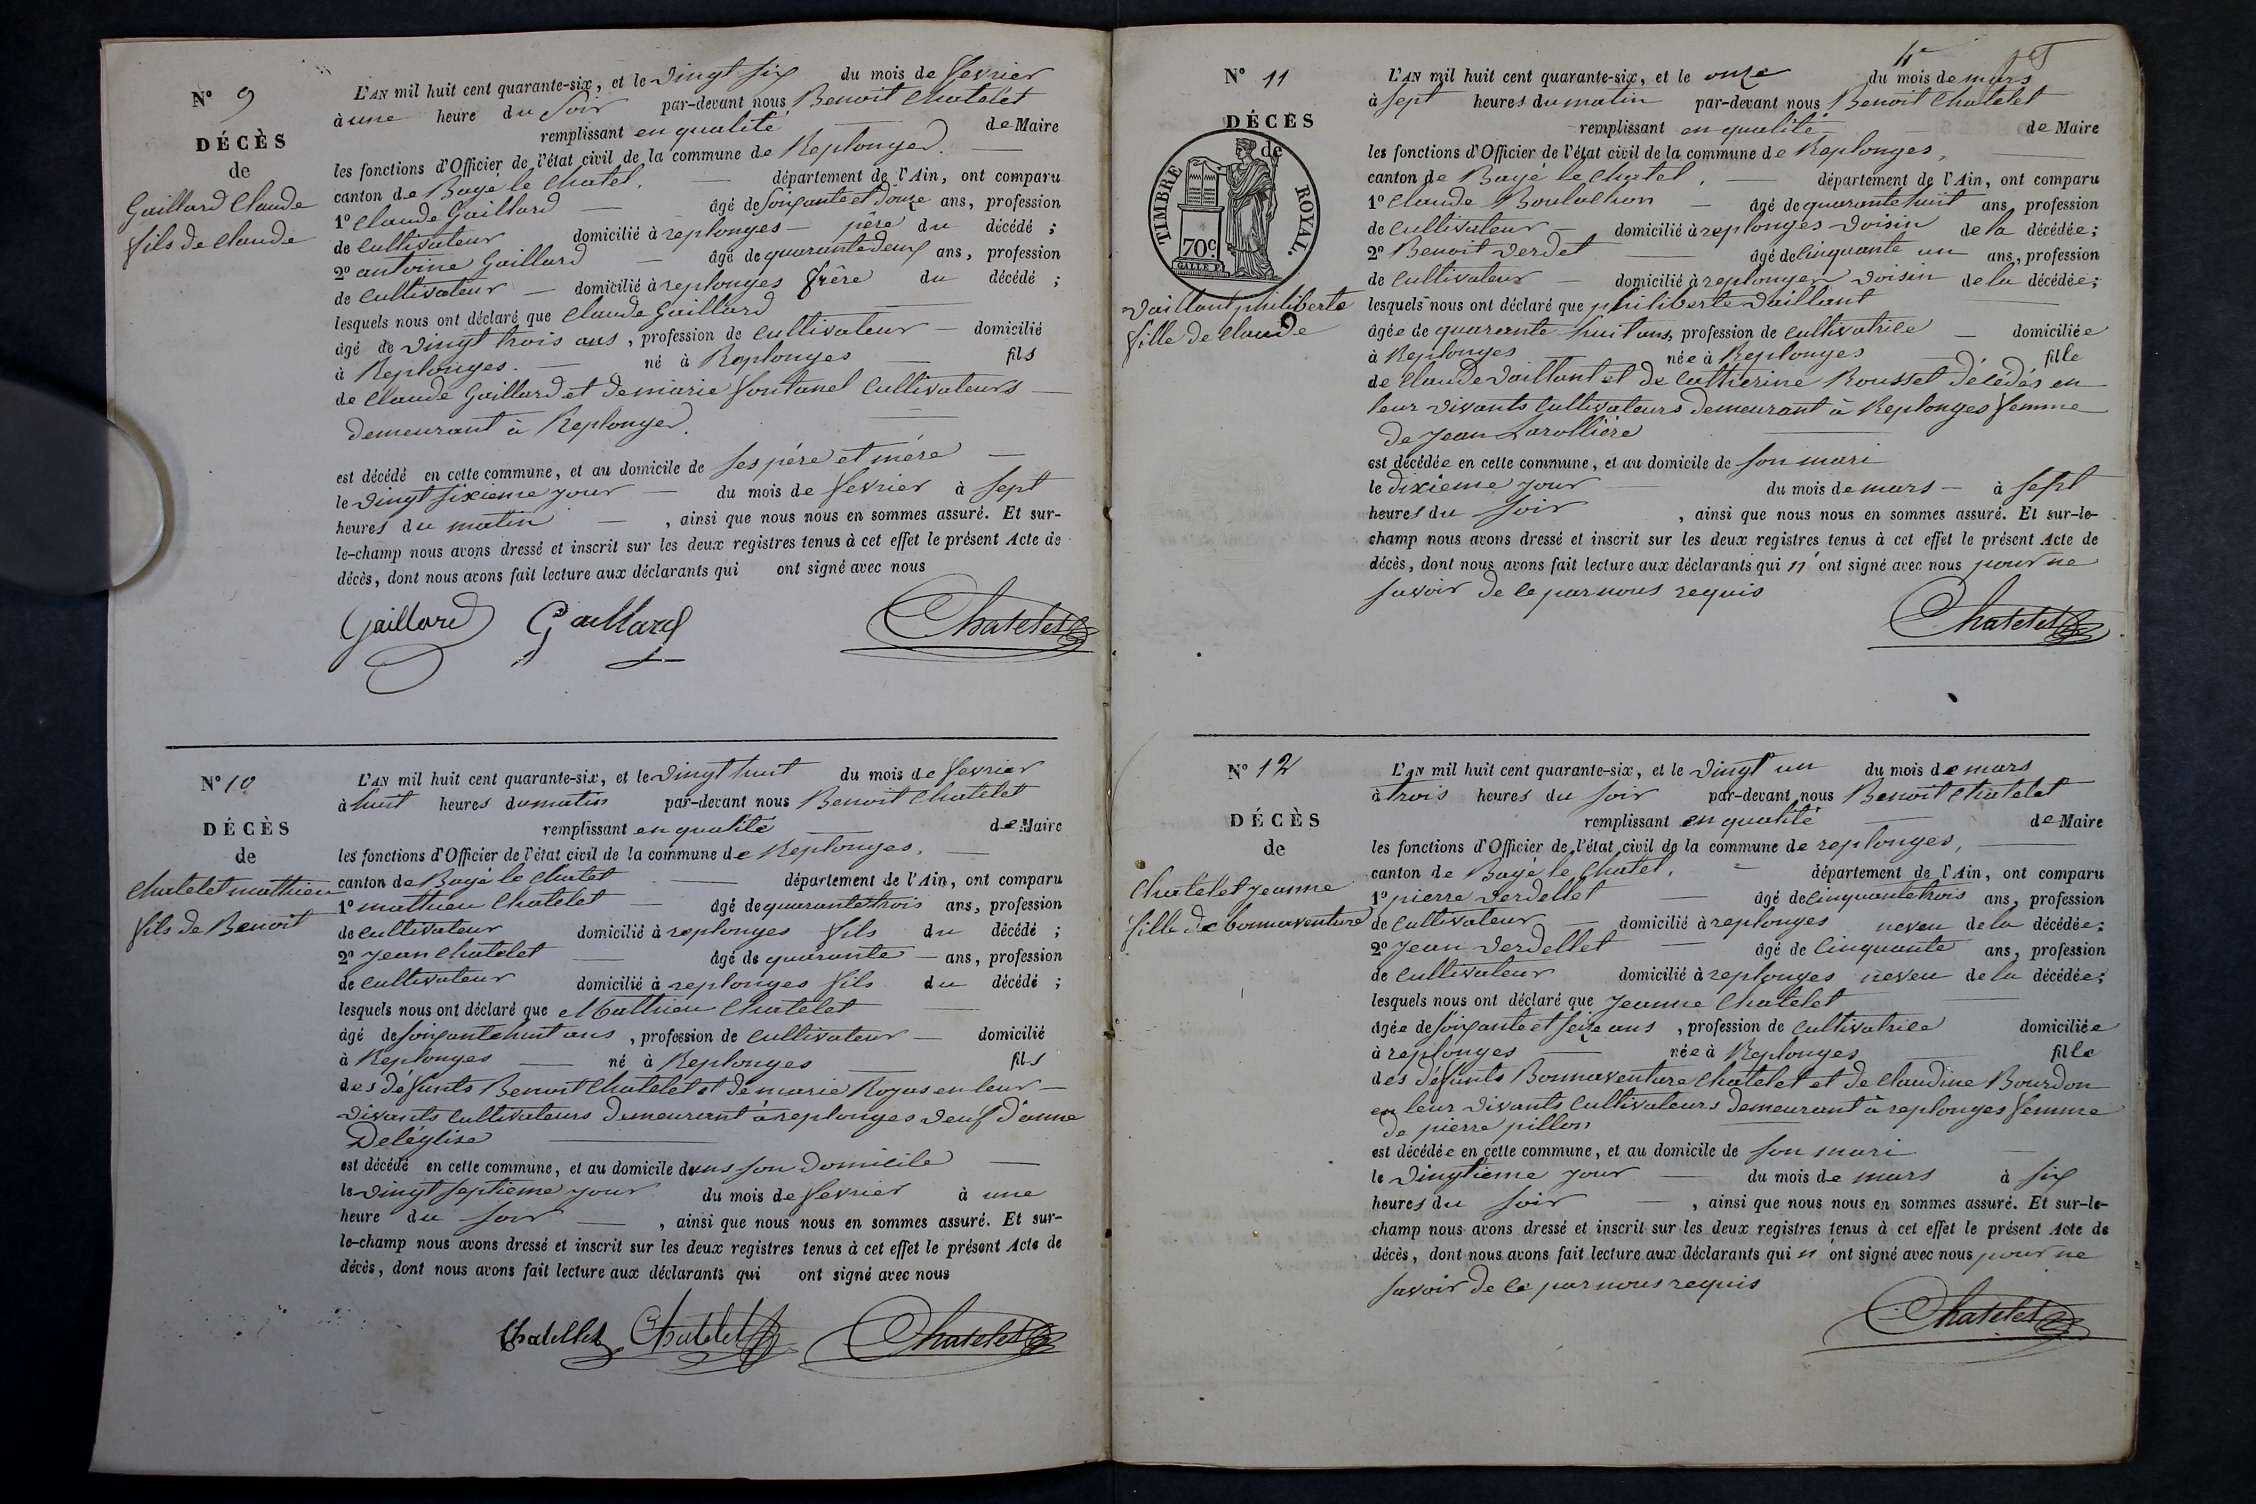 N° 9
DÉCÈS
de
Gaillard Claude
fils de Claude
L'AN mil huit cent quarante-six, et le vingt six du mois de fevrier
à une heure du soir par-devant nous Benoit Chatelet
remplissant en qualité de Maire
les fonctions d'Officier de l'état civil de la commune de Replonges.
canton de Bagé le Chatel. département de l'Ain, ont comparu
1° Claude Gaillard âgé de soixante et douze ans, profession
de cultivateur domicilié à replonges père du décédé ;
2° antoine Gaillard âgé de quarante deux ans, profession
de cultivateur domicilié à replonges frère du décédé ;
lesquels nous ont déclaré que Claude Gaillard
âgé de vingt trois ans, profession de cultivateur domicilié
à Replonges. né à Replonges fils
de Claude Gaillard et de marie fontanel cultivateurs
demeurant à Replonges.
est décédé en cette commune, et au domicile de ses père et mère
le vingt sixieme jour du mois de fevrier à sept
heures du matin, ainsi que nous nous en sommes assuré. Et sur-
le-champ nous avons dressé et inscrit sur les deux registres tenus à cet effet le présent Acte de
décès, dont nous avons fait lecture aux déclarants qui ont signé avec nous
Gaillard Gaillard Chatelet
N° 10
DÉCÈS
de
Chatelet mathieu
fils de Benoit
L'AN mil huit cent quarante-six, et le vingt huit du mois de fevrier
à huit heures du matin par-devant nous Benoit Chatelet
remplissant en qualité de Maire
les fonctions d'Officier de l'état civil de la commune de Replonges.
canton de Bagé le Chatel département de l'Ain, ont comparu
1° mathieu Chatelet âgé de quarante trois ans, profession
de cultivateur domicilié à replonges fils du décédé ;
2° Jean Chatelet âgé de quarante ans, profession
de cultivateur domicilié à replonges fils du décédé ;
lesquels nous ont déclaré que Mathieu Chatelet
âgé de soixante huit ans, profession de cultivateur domicilié
à Replonges né à Replonges fils
des défunts Benoit Chatelet et de marie Royas en leur
vivants cultivateurs demeurant à replonges veuf d'anne
Deléglise
est décédé en cette commune, et au domicile dans son domicile
le vingt septieme jour du mois de fevrier à une
heure du soir, ainsi que nous nous en sommes assuré. Et sur-
le-champ nous avons dressé et inscrit sur les deux registres tenus à cet effet le présent Acte de
décès, dont nous avons fait lecture aux déclarants qui ont signé avec nous
Chatellet Chatelet Chatelet
N° 11
DÉCÈS
de
TIMBRE ROYAL.
70c.
vaillant philiberte
fille de Claude
L'AN mil huit cent quarante-six, et le onze du mois de mars
à sept heures du matin par-devant nous Benoit Chatelet
remplissant en qualité de Maire
les fonctions d'Officier de l'état civil de la commune de Replonges,
canton de Bagé le Chatel. département de l'Ain, ont comparu
1° Claude Boulachon âgé de quarante huit ans, profession
de cultivateur domicilié à replonges voisin de la décédée ;
2° Benoit Verdet âgé de cinquante un ans, profession
de cultivateur domicilié à replonges voisin de la décédée ;
lesquels nous ont déclaré que philiberte vaillant
âgée de quarante huit ans, profession de cultivatrice domiciliée
à Replonges née à Replonges fille
de Claude vaillant et de Catherine Rousset décédés en
leur vivants cultivateurs demeurant à Replonges femme
de Jean Larollière
est décédée en cette commune, et au domicile de son mari
le dixieme jour du mois de mars à sept
heures du soir, ainsi que nous nous en sommes assuré. Et sur-le-
champ nous avons dressé et inscrit sur les deux registres tenus à cet effet le présent Acte de
décès, dont nous avons fait lecture aux déclarants qui n'ont signé avec nous pour ne
savoir de ce par nous requis
Chatelet
N° 12
DÉCÈS
de
Chatelet Jeanne
fille de bonnaventure
L'AN mil huit cent quarante-six, et le vingt un du mois de mars
à trois heures du soir par-devant nous Benoit Chatelet
remplissant en qualité de Maire
les fonctions d'Officier de l'état civil de la commune de replonges,
canton de Bagé le Chatel. département de l'Ain, ont comparu
1° pierre Verdellet âgé de cinquante trois ans, profession
de cultivateur domicilié à replonges neveu de la décédée ;
2° Jean Verdellet âgé de cinquante ans, profession
de cultivateur domicilié à replonges neveu de la décédée ;
lesquels nous ont déclaré que Jeanne Chatelet
âgée de soixante et seize ans, profession de cultivatrice domiciliée
à replonges née à Replonges fille
des défunts Bonnaventure Chatelet et de Claudine Bourdon
en leur vivants cultivateurs demeurant à replonges femme
de pierre pillon
est décédée en cette commune, et au domicile de son mari
le vingtieme jour du mois de mars à six
heures du soir, ainsi que nous nous en sommes assuré. Et sur-le-
champ nous avons dressé et inscrit sur les deux registres tenus à cet effet le présent Acte de
décès, dont nous avons fait lecture aux déclarants qui n'ont signé avec nous pour ne
savoir de ce par nous requis
Chatelet